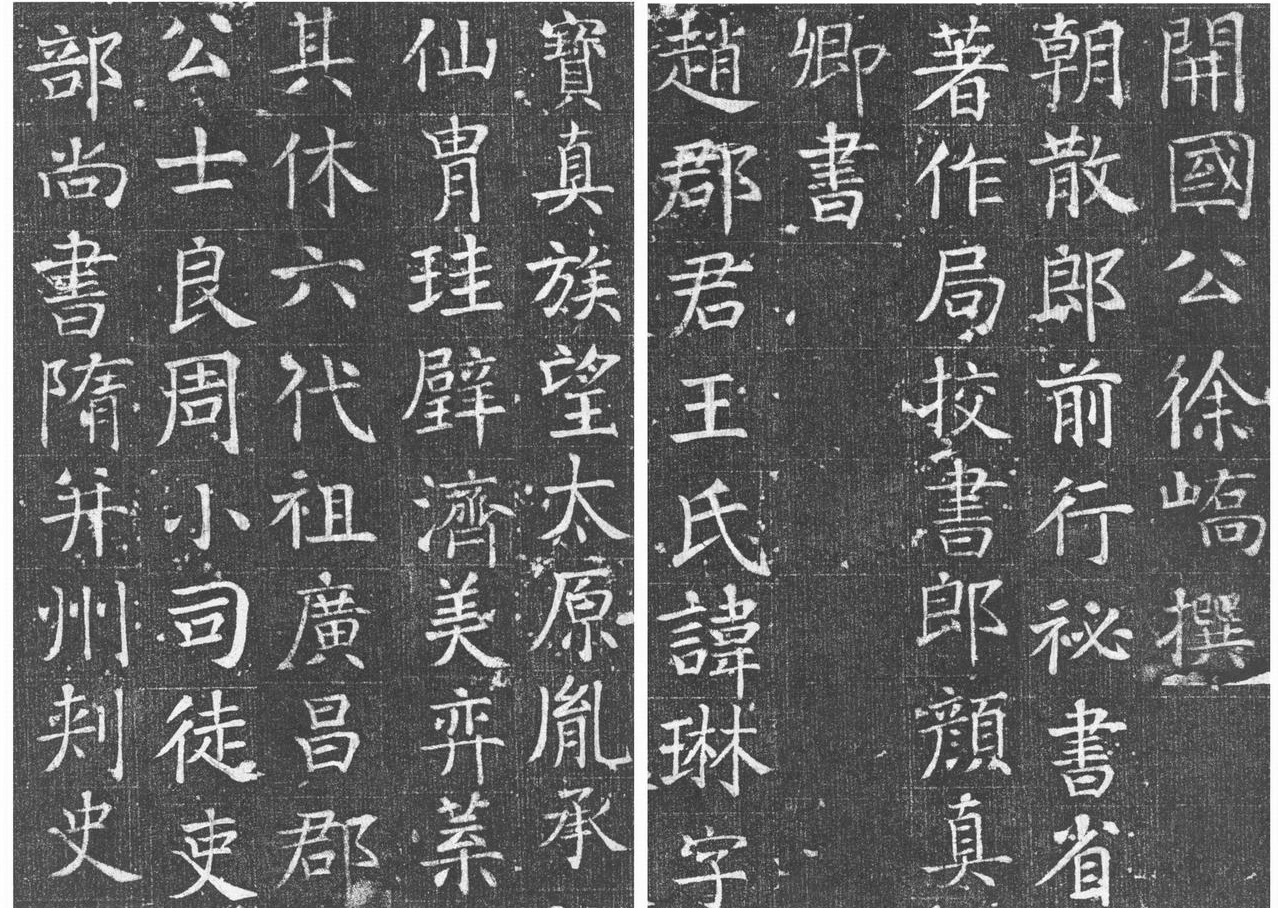 開國公徐嶠撰
朝散郎前行祕書省
著作局挍書郎顏真
卿書
趙郡君王氏諱琳字
寶真族望太原胤承
仙胄珪璧濟美弈葉
其休六代祖廣昌郡
公士良周小司徒吏
部尚書隋并州刾史